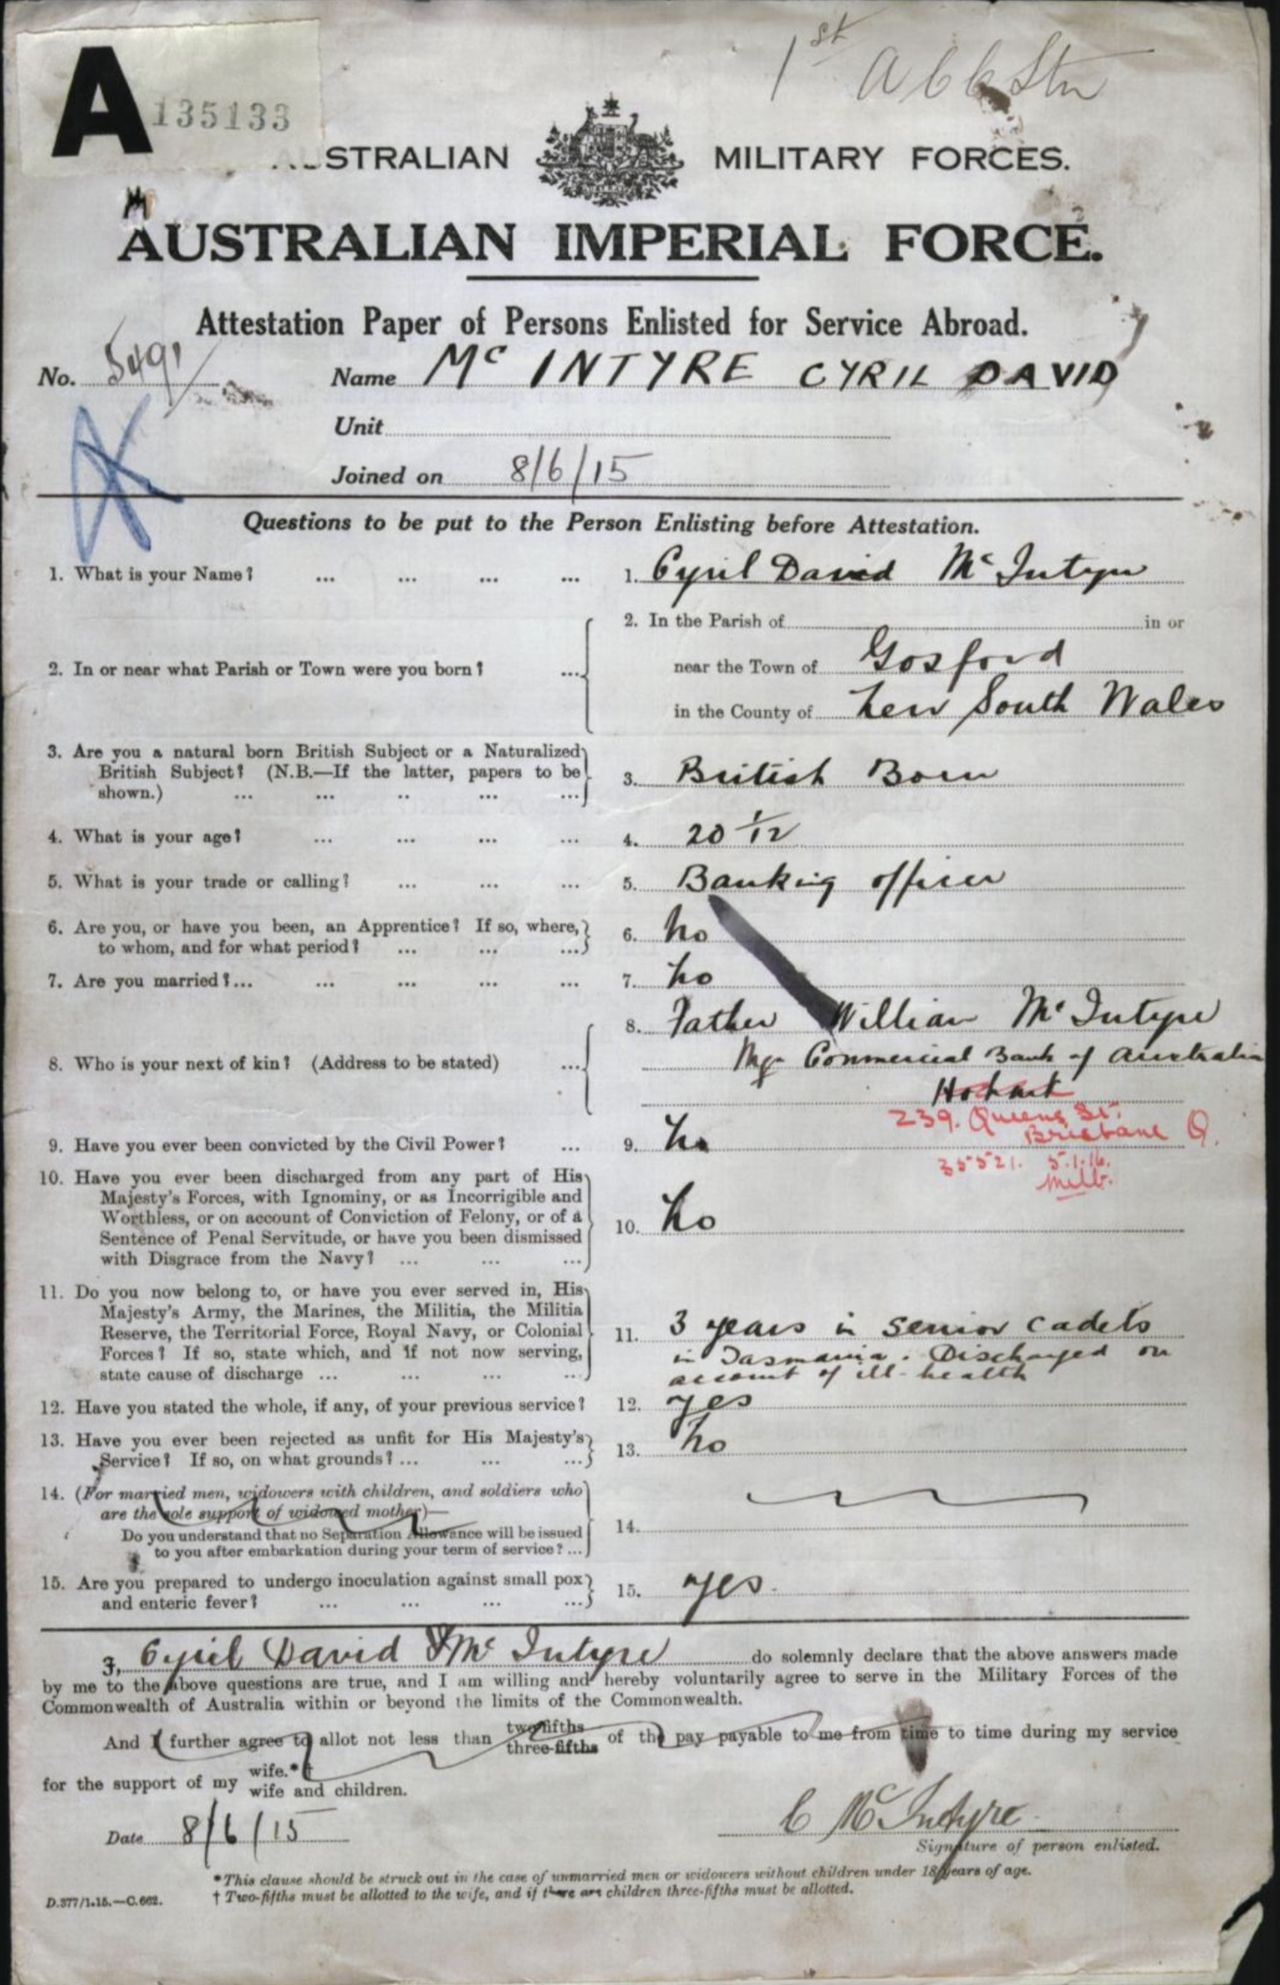 A 135133
AUSTRALIAN MILITARY FORCES.
AUSTRALIAN IMPERIAL FORCE.
Attestation Paper of Persons Enlisted for Service Abroad.
No. 5491 Name Mc INTYRE CYRIL DAVID
Unit
Joined on 8/6/15
Questions to be put to the Person Enlisting before Attestation.
1. What is your Name? ... ... ... ... 1. Cyril David Mc Intyre
2. In or near what Parish or Town were you born? ... 2. In the Parish of in or
near the Town of Gosford
in the County of New South Wales
3. Are you a natural born British Subject or a Naturalized
British Subject? (N.B.—If the latter, papers to be
shown.) ... ... .. ... ... 3. British Born
4. What is your age? ... ... ... ... 4. 20 1/12
5. What is your trade or calling? ... ... ... 5. Banking officer
6. Are you, or have you been, an Apprentice? If so, where,
to whom, and for what period? ... ... ... 6. No
7. Are you married?... ... ... ... ... 7. No
8. Who is your next of kin? (Address to be stated) ... 8. Father William Mc Intyre
Mgr Commercial Bank of Australia
Hobart
239. Queens St.
Brisbane Q.
35521. 5.1.16.
Melb.
9. Have you ever been convicted by the Civil Power? ... 9. No
10. Have you ever been discharged from any part of His
Majesty's Forces, with Ignominy, or as Incorrigible and
Worthless, or on account of Conviction of Felony, or of a
Sentence of Penal Servitude, or have you been dismissed
with Disgrace from the Navy? ... ... ... 10. No
11. Do you now belong to, or have you ever served in, His
Majesty's Army, the Marines, the Militia, the Militia
Reserve, the Territorial Force, Royal Navy, or Colonial
Forces? If so, state which, and if not now serving,
state cause of discharge ... ... ... ... 11. 3 years in senior cadets
in Tasmania. Discharged on
account of ill-health
12. Have you stated the whole, if any, of your previous service? 12. yes
13. Have you ever been rejected as unfit for His Majesty's
Service? If so, on what grounds? ... ... ... 13. No
14. (For married men, widowers with children, and soldiers who
are the sole support of widowed mother)—
Do you understand that no Separation Allowance will be issued
to you after embarkation during your term of service? ... 14.
15. Are you prepared to undergo inoculation against small pox
and enteric fever? ... ... ... ... 15. yes.
I, Cyril David Mc Intyre do solemnly declare that the above answers made
by me to the above questions are true, and I am willing and hereby voluntarily agree to serve in the Military Forces of the
Commonwealth of Australia within or beyond the limits of the Commonwealth.
And I further agree to allot not less than two-fifths three-fifths of the pay payable to me from time to time during my service
for the support of my wife.*† wife and children.
Date 8/6/15 C McIntyre
Signature of person enlisted.
*This clause should be struck out in the case of unmarried men or widowers without children under 18 years of age.
† Two-fifths must be allotted to the wife, and if there are children three-fifths must be allotted.
D.377/1.15.—C.662.